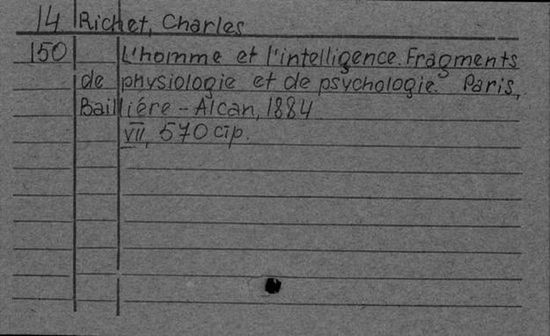 14 Richet, Charles
150 L'homme et l'intelligence. Fragments
de physiologie et de psychologie. Paris,
Baillière - Alcan, 1884
VII, 570 стр.